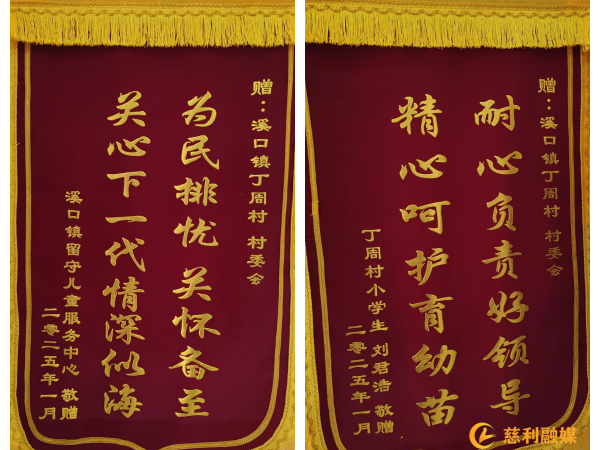 赠：溪口镇丁周村 村委会
为民排忧 关怀备至
关心下一代情深似海
溪口镇留守儿童服务中心 敬赠
二零二五年一月
赠：溪口镇丁周村 村委会
耐心负责好领导
精心呵护育幼苗
丁周村小学生 刘君浩 敬赠
二零二五年一月
慈利融媒